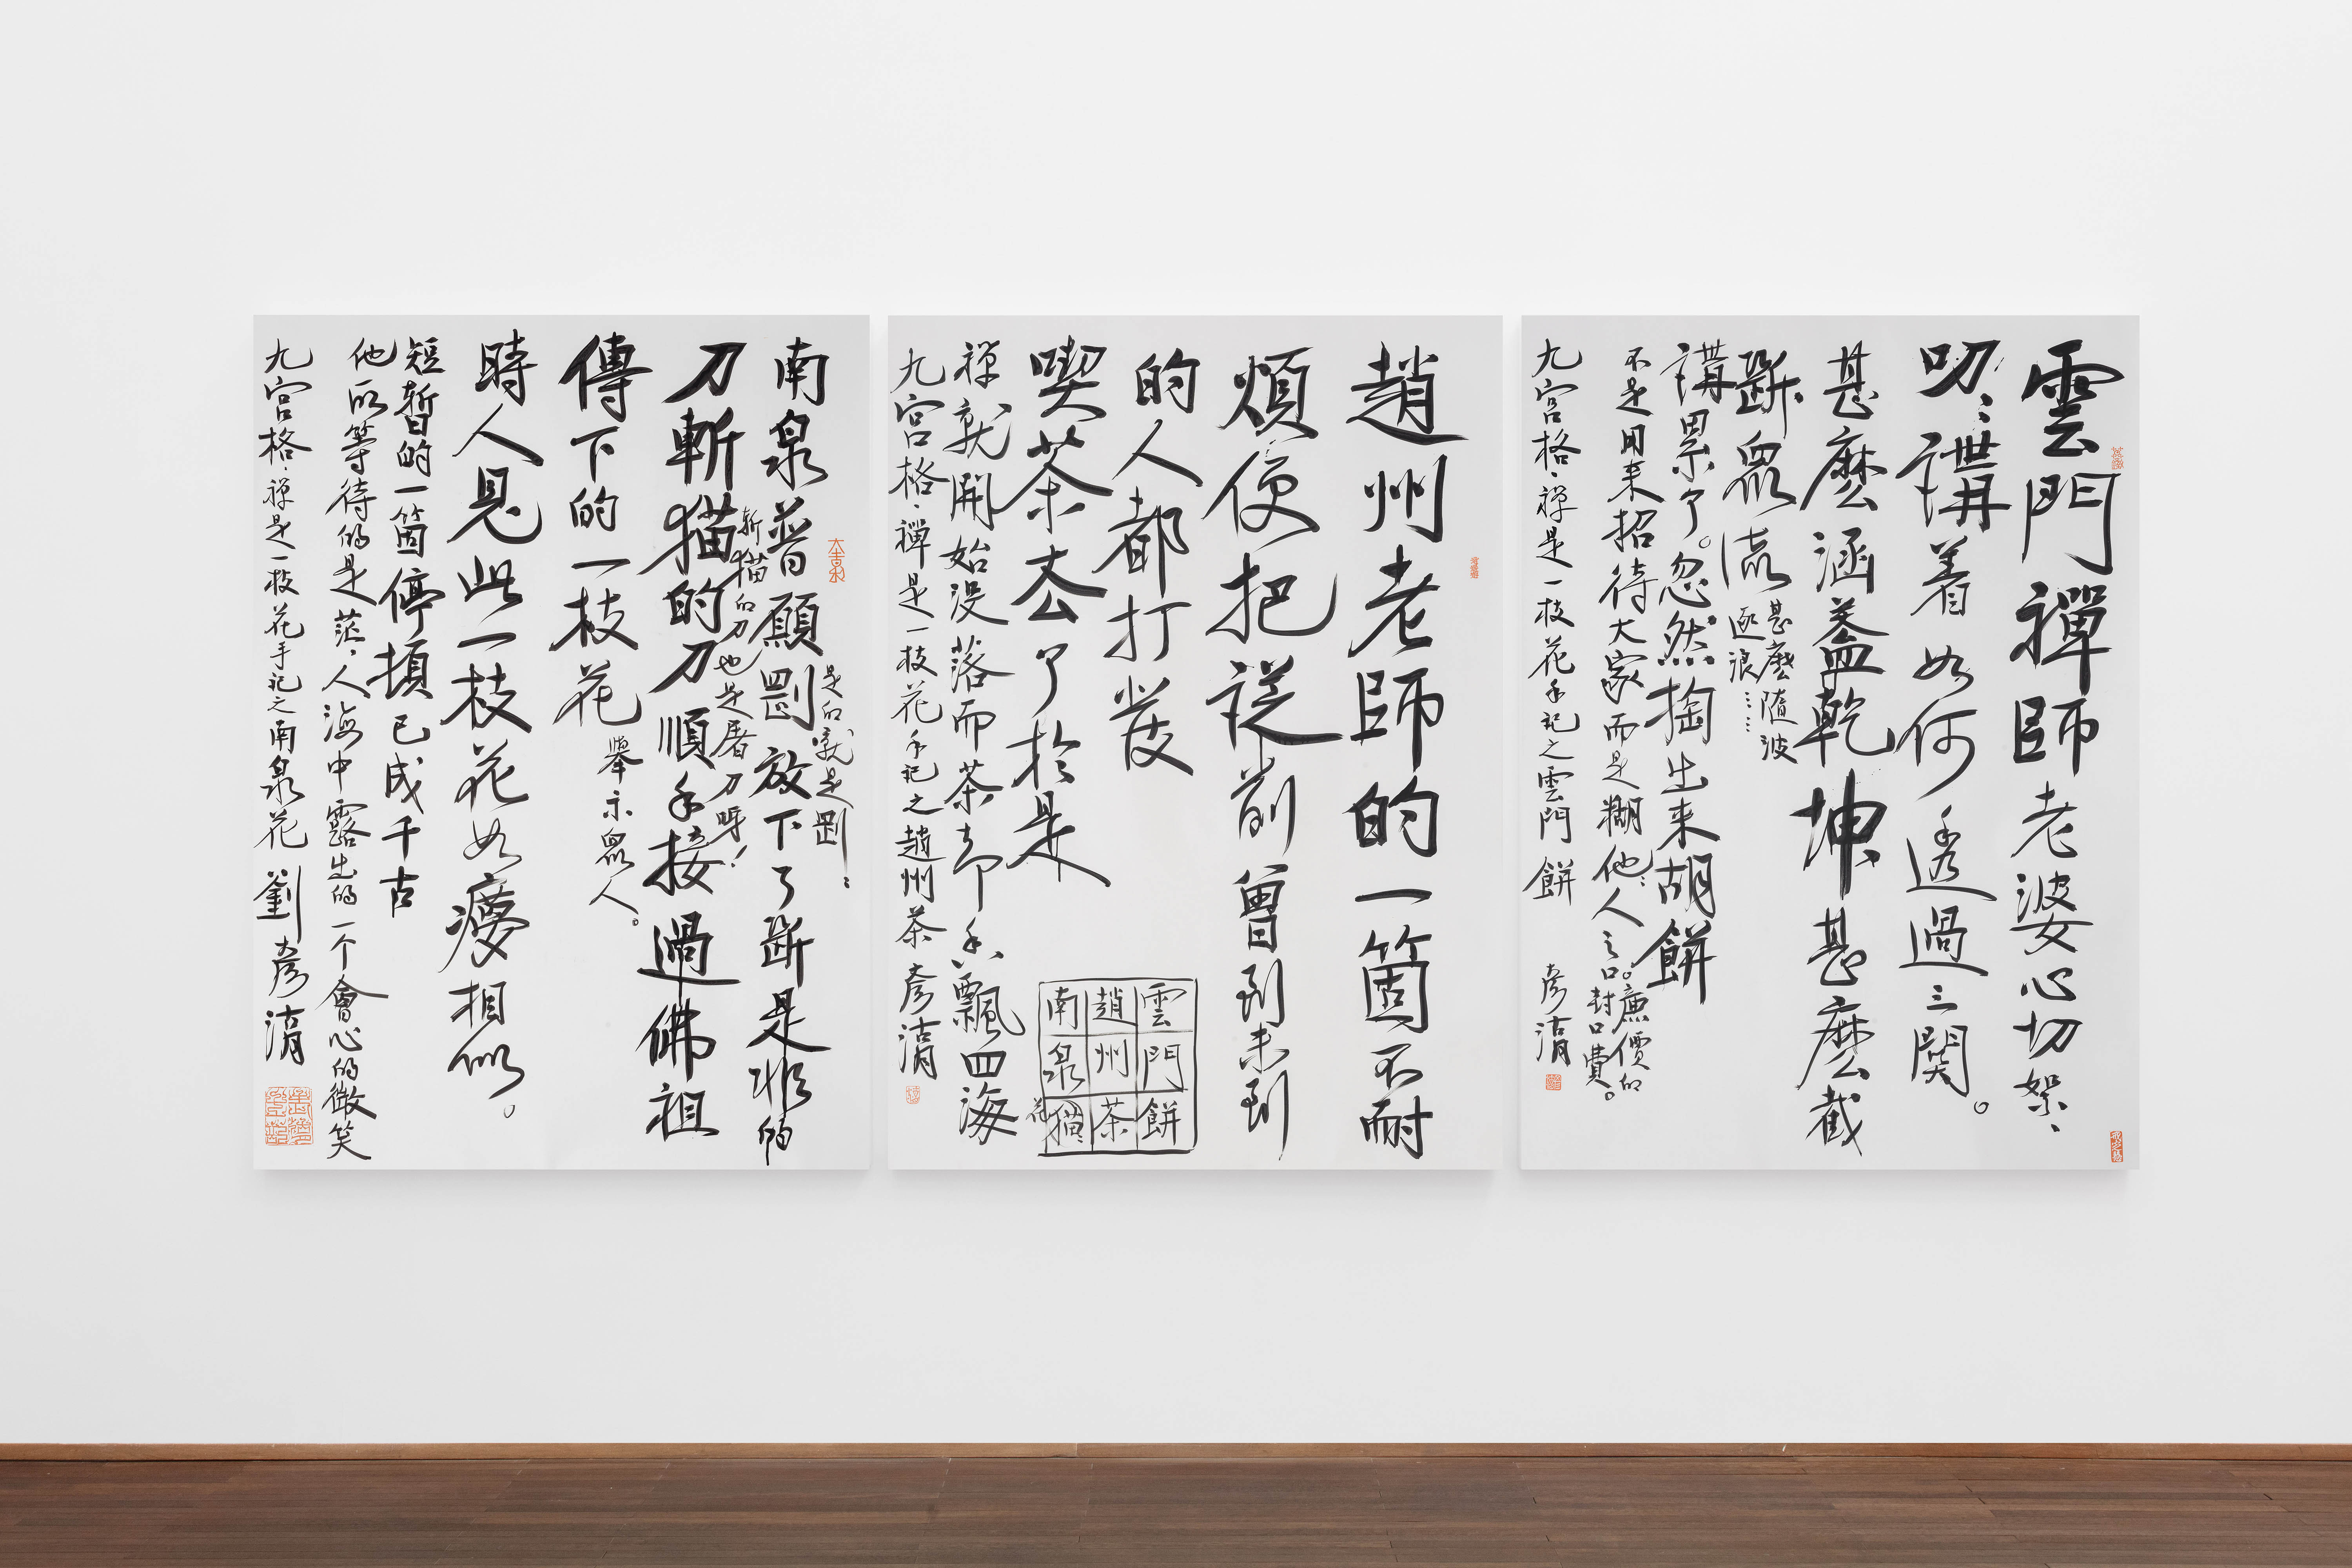 雲門禪師老婆心切絮、
叨、、講着如何透過三関。
甚麽涵蓋乾坤甚麽截
斷眾流
甚麽隨波
逐浪……
講累了。忽然掏出来胡餅
不是用来招待大家而是糊他、人之口。廉價的
封口費。
九宮格、禅是一枝花手記之雲門餅 彦
趙州老師的一箇不耐
煩便把從前曾到未到
的人都打發
喫茶去了於是
禅就開始没落而茶却香飄四海
九宮格、禪是一枝花手記之趙州茶 彦
雲門餅
趙州茶
南泉猫
花
南泉普願剴放下了斷是非的
是的就是剴、
刀斬猫的刀順手接過佛祖
斬猫的刀也是屠刀呀!
傳下的一枝花
舉示眾人。
時人見此一枝花如夢相似。
短暫的一箇停頓已成千古
他所等待的是茫、人海中露出的一个會心的微笑
九宮格、禅是一枝花手記之南泉花 劉彦